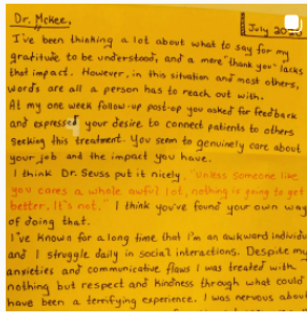 Dr. McKee,
July 20
I've been thinking a lot about what to say for my
gratitude to be understood, and a mere "thank you" lacks
that impact. However, in this situation and most others,
words are all a person has to reach out with.
At my one week follow-up post-op you asked for feedback
and expressed your desire to connect patients to others
seeking this treatment. You seem to genuinely care about
your job and the impact you have.
I think Dr. Seuss put it nicely. "Unless someone like
you cares a whole awful lot, nothing is going to get
better. It's not." I think you've found your own way
of doing that.
I've known for a long time that I'm an awkward individu
and I struggle daily in social interactions. Despite my
anxieties and communicative flaws I was treated with
nothing but respect and kindness through what could
have been a terrifying experience. I was nervous about